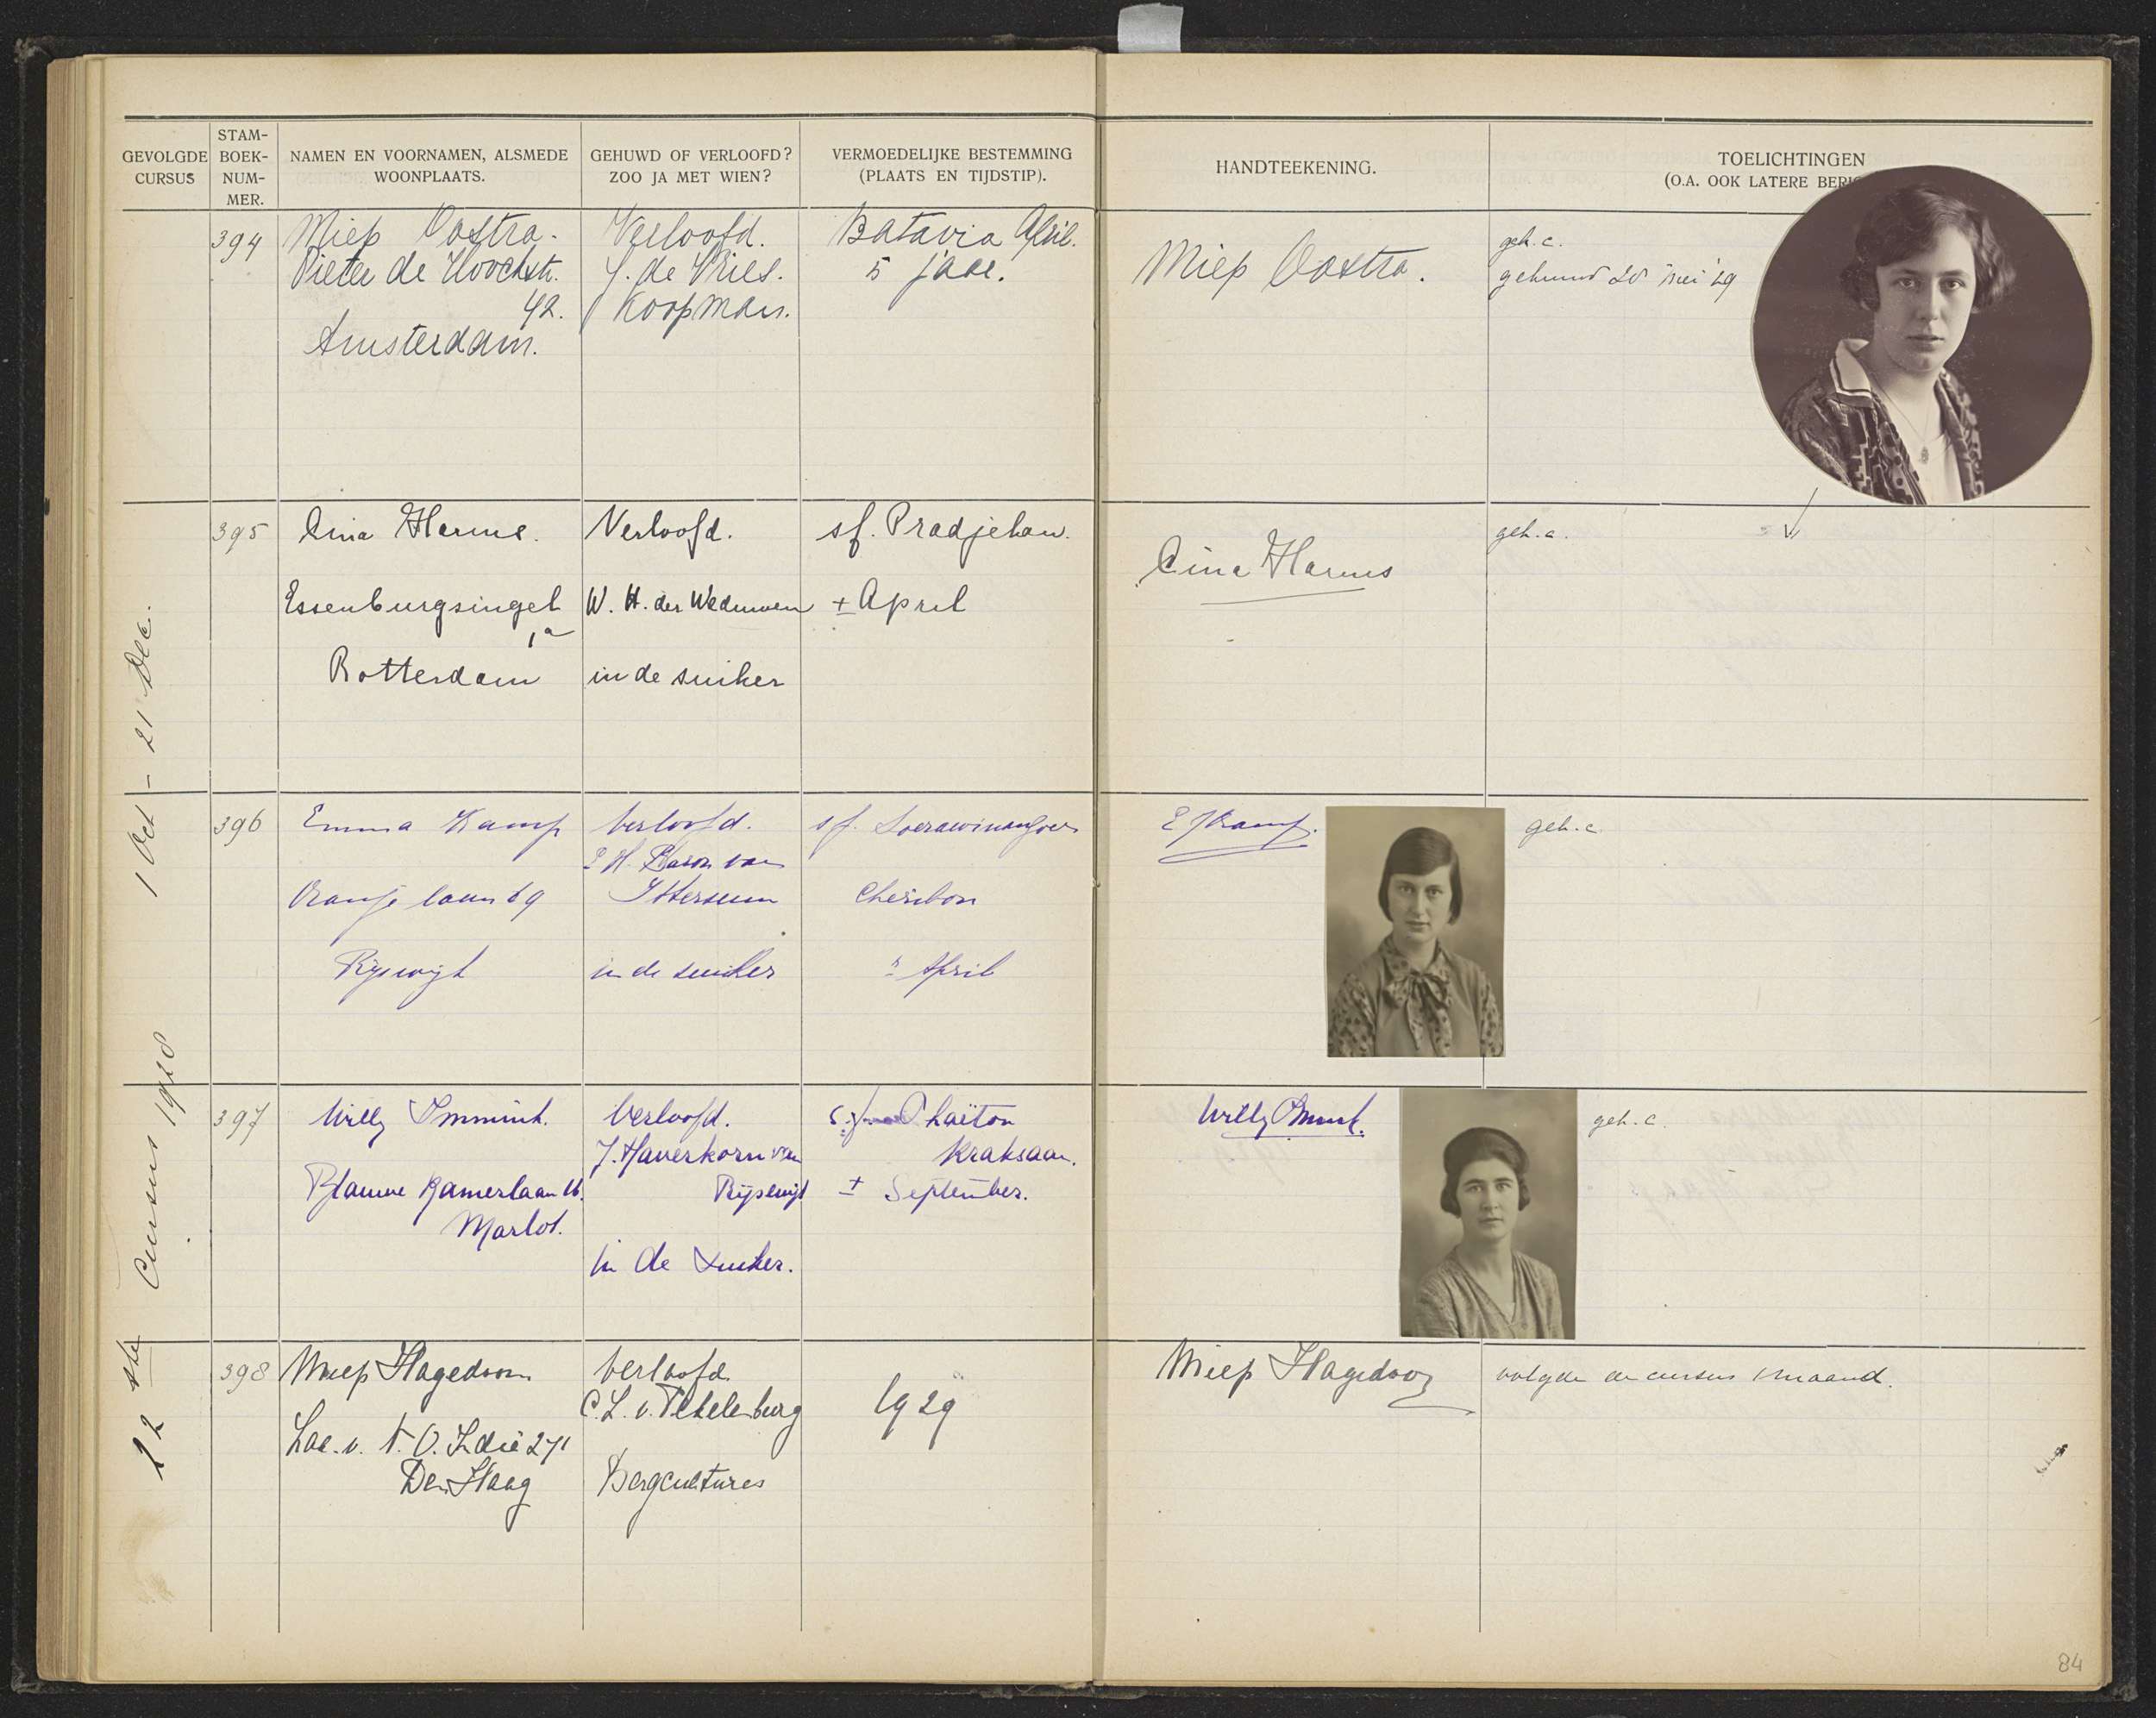 GEVOLGDE
CURSUS
STAM-
BOEK-
NUM-
MER.
NAMEN EN VOORNAMEN, ALSMEDE
WOONPLAATS.
GEHUWD OF VERLOOFD?
ZOO JA MET WIEN?
VERMOEDELIJKE BESTEMMING
(PLAATS EN TIJDSTIP).
HANDTEEKENING.
TOELICHTINGEN
(O.A. OOK LATERE
22ste Cursus 1928 1 Oct - 21 Dec.
394
Miep Oostra.
Pieter de Hoochstr.
42.
Amsterdam.
Verloofd.
J. de Vries.
Koopman.
Batavia April.
5 jaar.
Miep Oostra.
geh. c.
gehuwd 20 '29
395
Cina Harms.
Essenburgsingel
1a
Rotterdam
Verloofd.
W. H. der Weduwen
in de suiker
sf. Pradjekan.
± April
Cina Harms
geh. c.
396
Emma Kamp
Oranjelaan 69
Rijswijk
Verloofd.
H. Baron van
Ittersum
in de suiker
sf. Soerawinangoen
Cheribon
± April
E J Kamp.
geh. c.
397
Willy Immink.
Blauwe Kamerlaan 16.
Marlot.
Verloofd.
J. Haverkorn van
Rijsewijk
in de suiker.
s.f. Phaïton
Kraksaan.
± September.
Willy Immink.
geh. c.
398
Miep Hagedoorn
Laa. v. N. O. Indië 271
Den Haag
Verloofd
C. L. v. Tekelenburg
Bergcultures
1929
Miep Hagedoorn
volgde de cursus 1 maand.
84